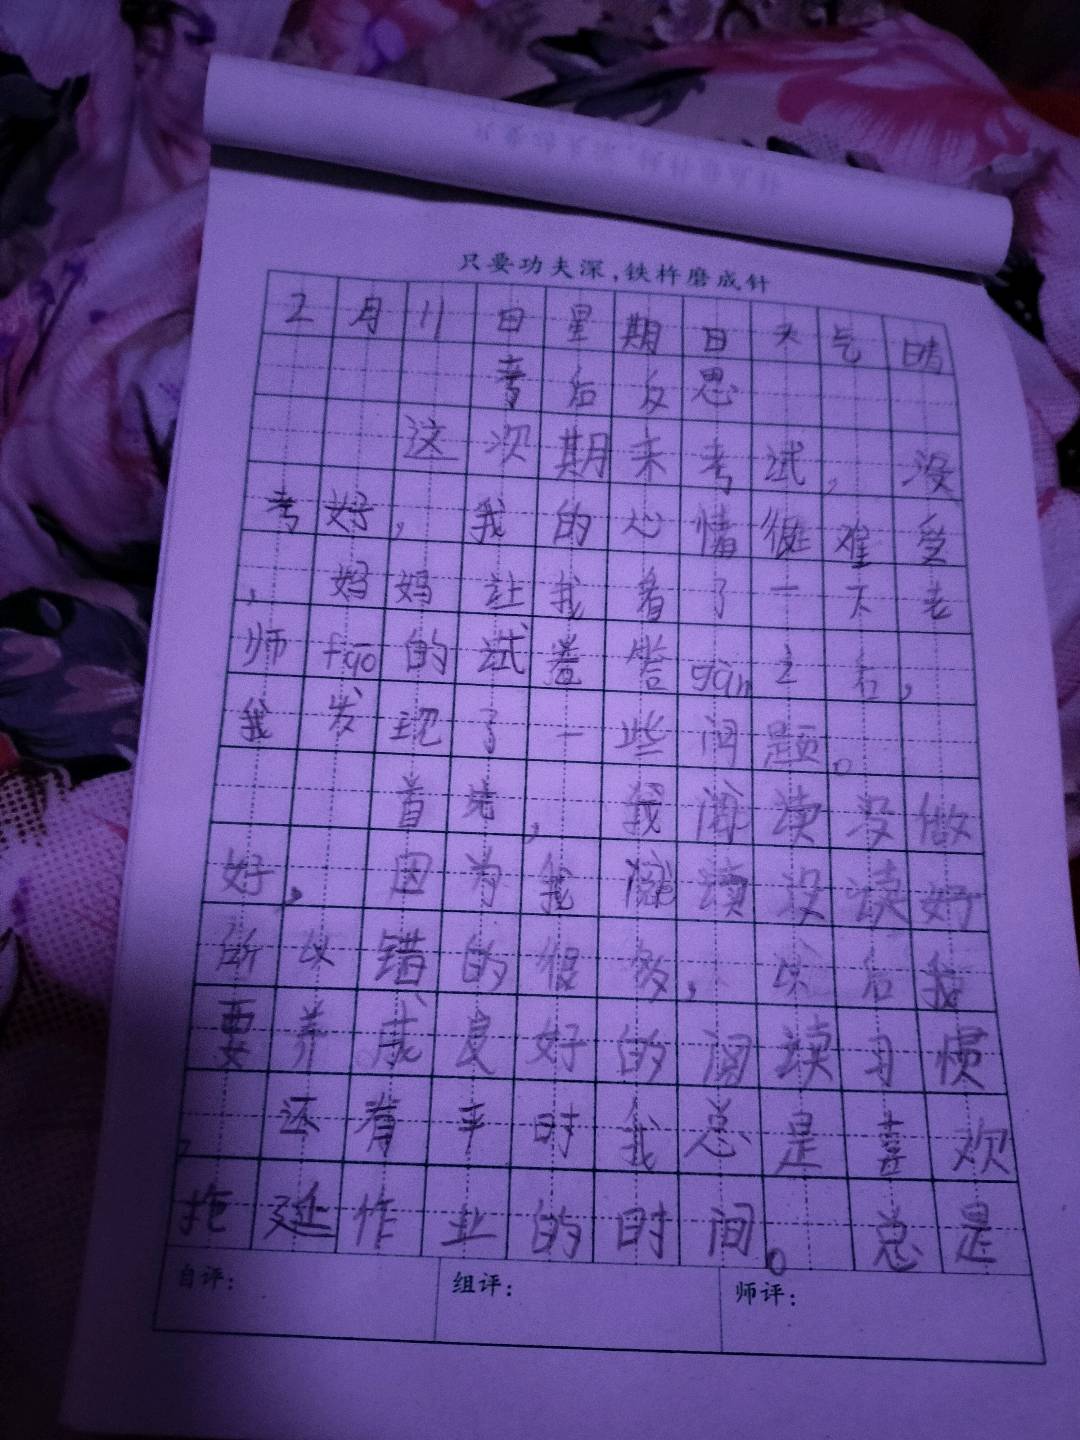 只要功夫深,铁杵磨成针
2月11日星期日天气晴
考后反思
这次期末考试,没
考好,我的心情很难受
,妈妈让我看了一下老
师fāo的试卷答gàn之后,
我发现了一些问题。
首先,我阅读没做
好,因为我阅读没读好
所以错的很多,以后我
要养成良好的阅读习惯
,还有平时我总是喜欢
拖延作业的时间。总是
自评: 组评: 师评: